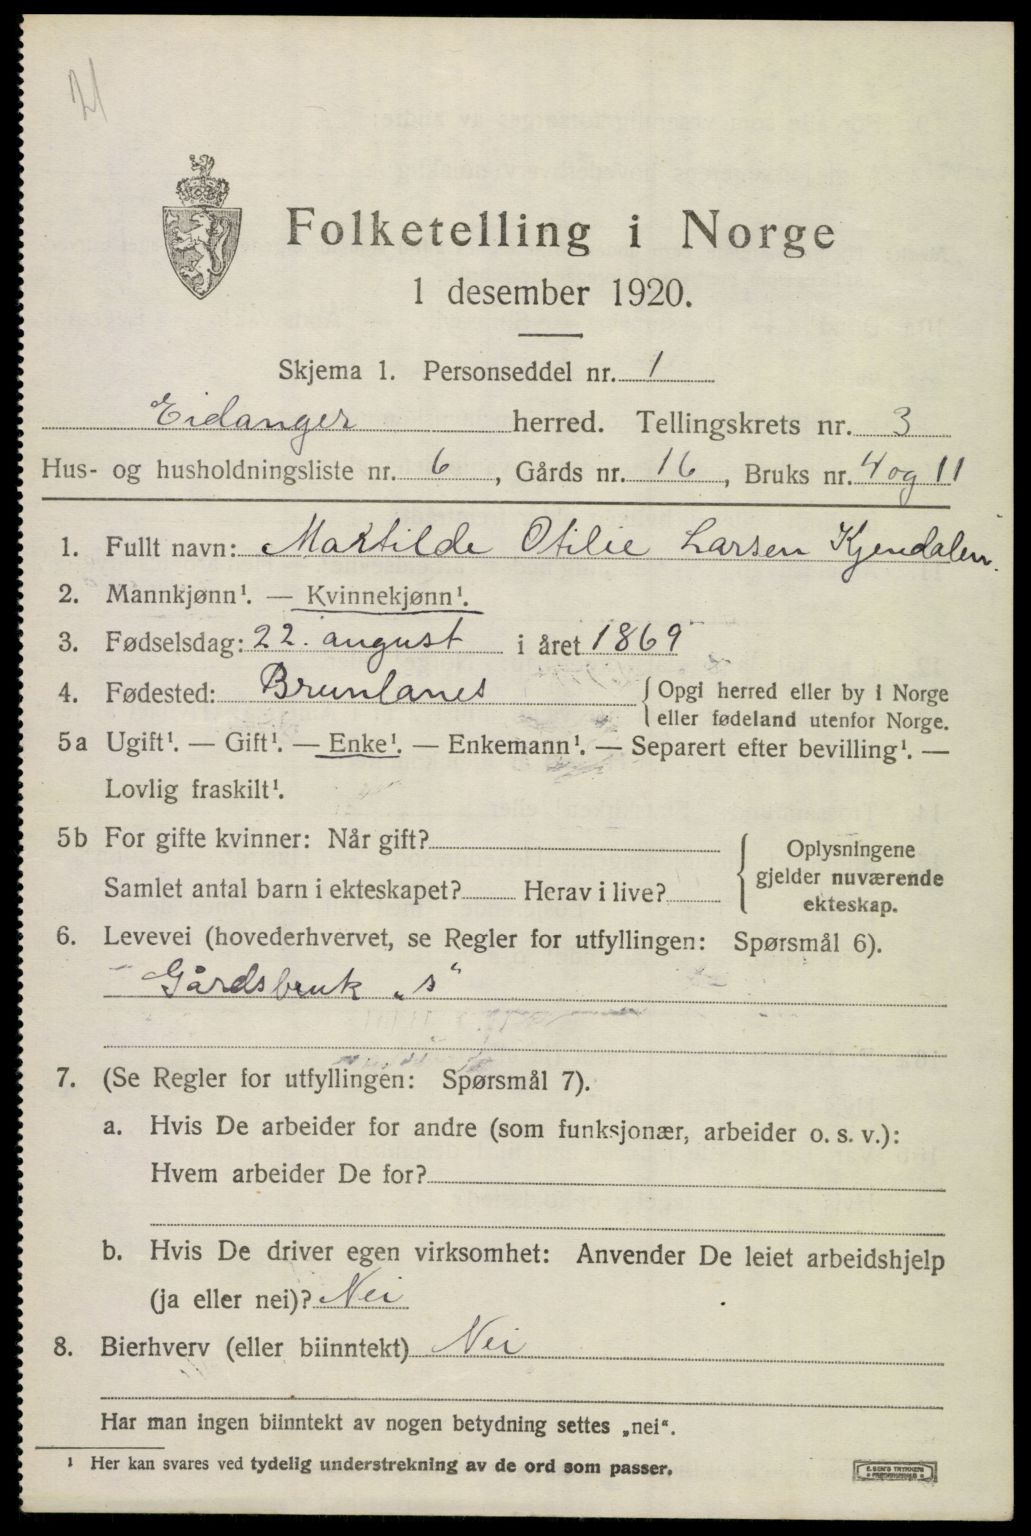 Folketelling i Norge
1 desember 1920.
Skjema 1. Personseddel nr. 1
Eidanger herred. Tellingskrets nr. 3
Hus- og husholdningsliste nr. 6, Gårds nr. 16, Bruks nr. 4 og 11
1. Fullt navn: Martilde Otilie Larsen Kjendalen.
2. Mannkjønn¹. — Kvinnekjønn¹.
3. Fødselsdag: 22. august i året 1869
4. Fødested: Brunlanes { Opgi herred eller by i Norge
eller fødeland utenfor Norge.
5a Ugift¹. — Gift¹. — Enke¹. — Enkemann¹. — Separert efter bevilling¹. —
Lovlig fraskilt¹.
5b For gifte kvinner: Når gift? { Oplysningene
gjelder nuværende
Samlet antal barn i ekteskapet? Herav i live? ekteskap.
6. Levevei (hovederhvervet, se Regler for utfyllingen: Spørsmål 6).
Gårdsbruk „s“
7. (Se Regler for utfyllingen: Spørsmål 7).
a. Hvis De arbeider for andre (som funksjonær, arbeider o. s. v.):
Hvem arbeider De for?
b. Hvis De driver egen virksomhet: Anvender De leiet arbeidshjelp
(ja eller nei)? Nei
8. Bierhverv (eller biinntekt) Nei
Har man ingen biinntekt av nogen betydning settes „nei“.
¹ Her kan svares ved tydelig understrekning av de ord som passer.